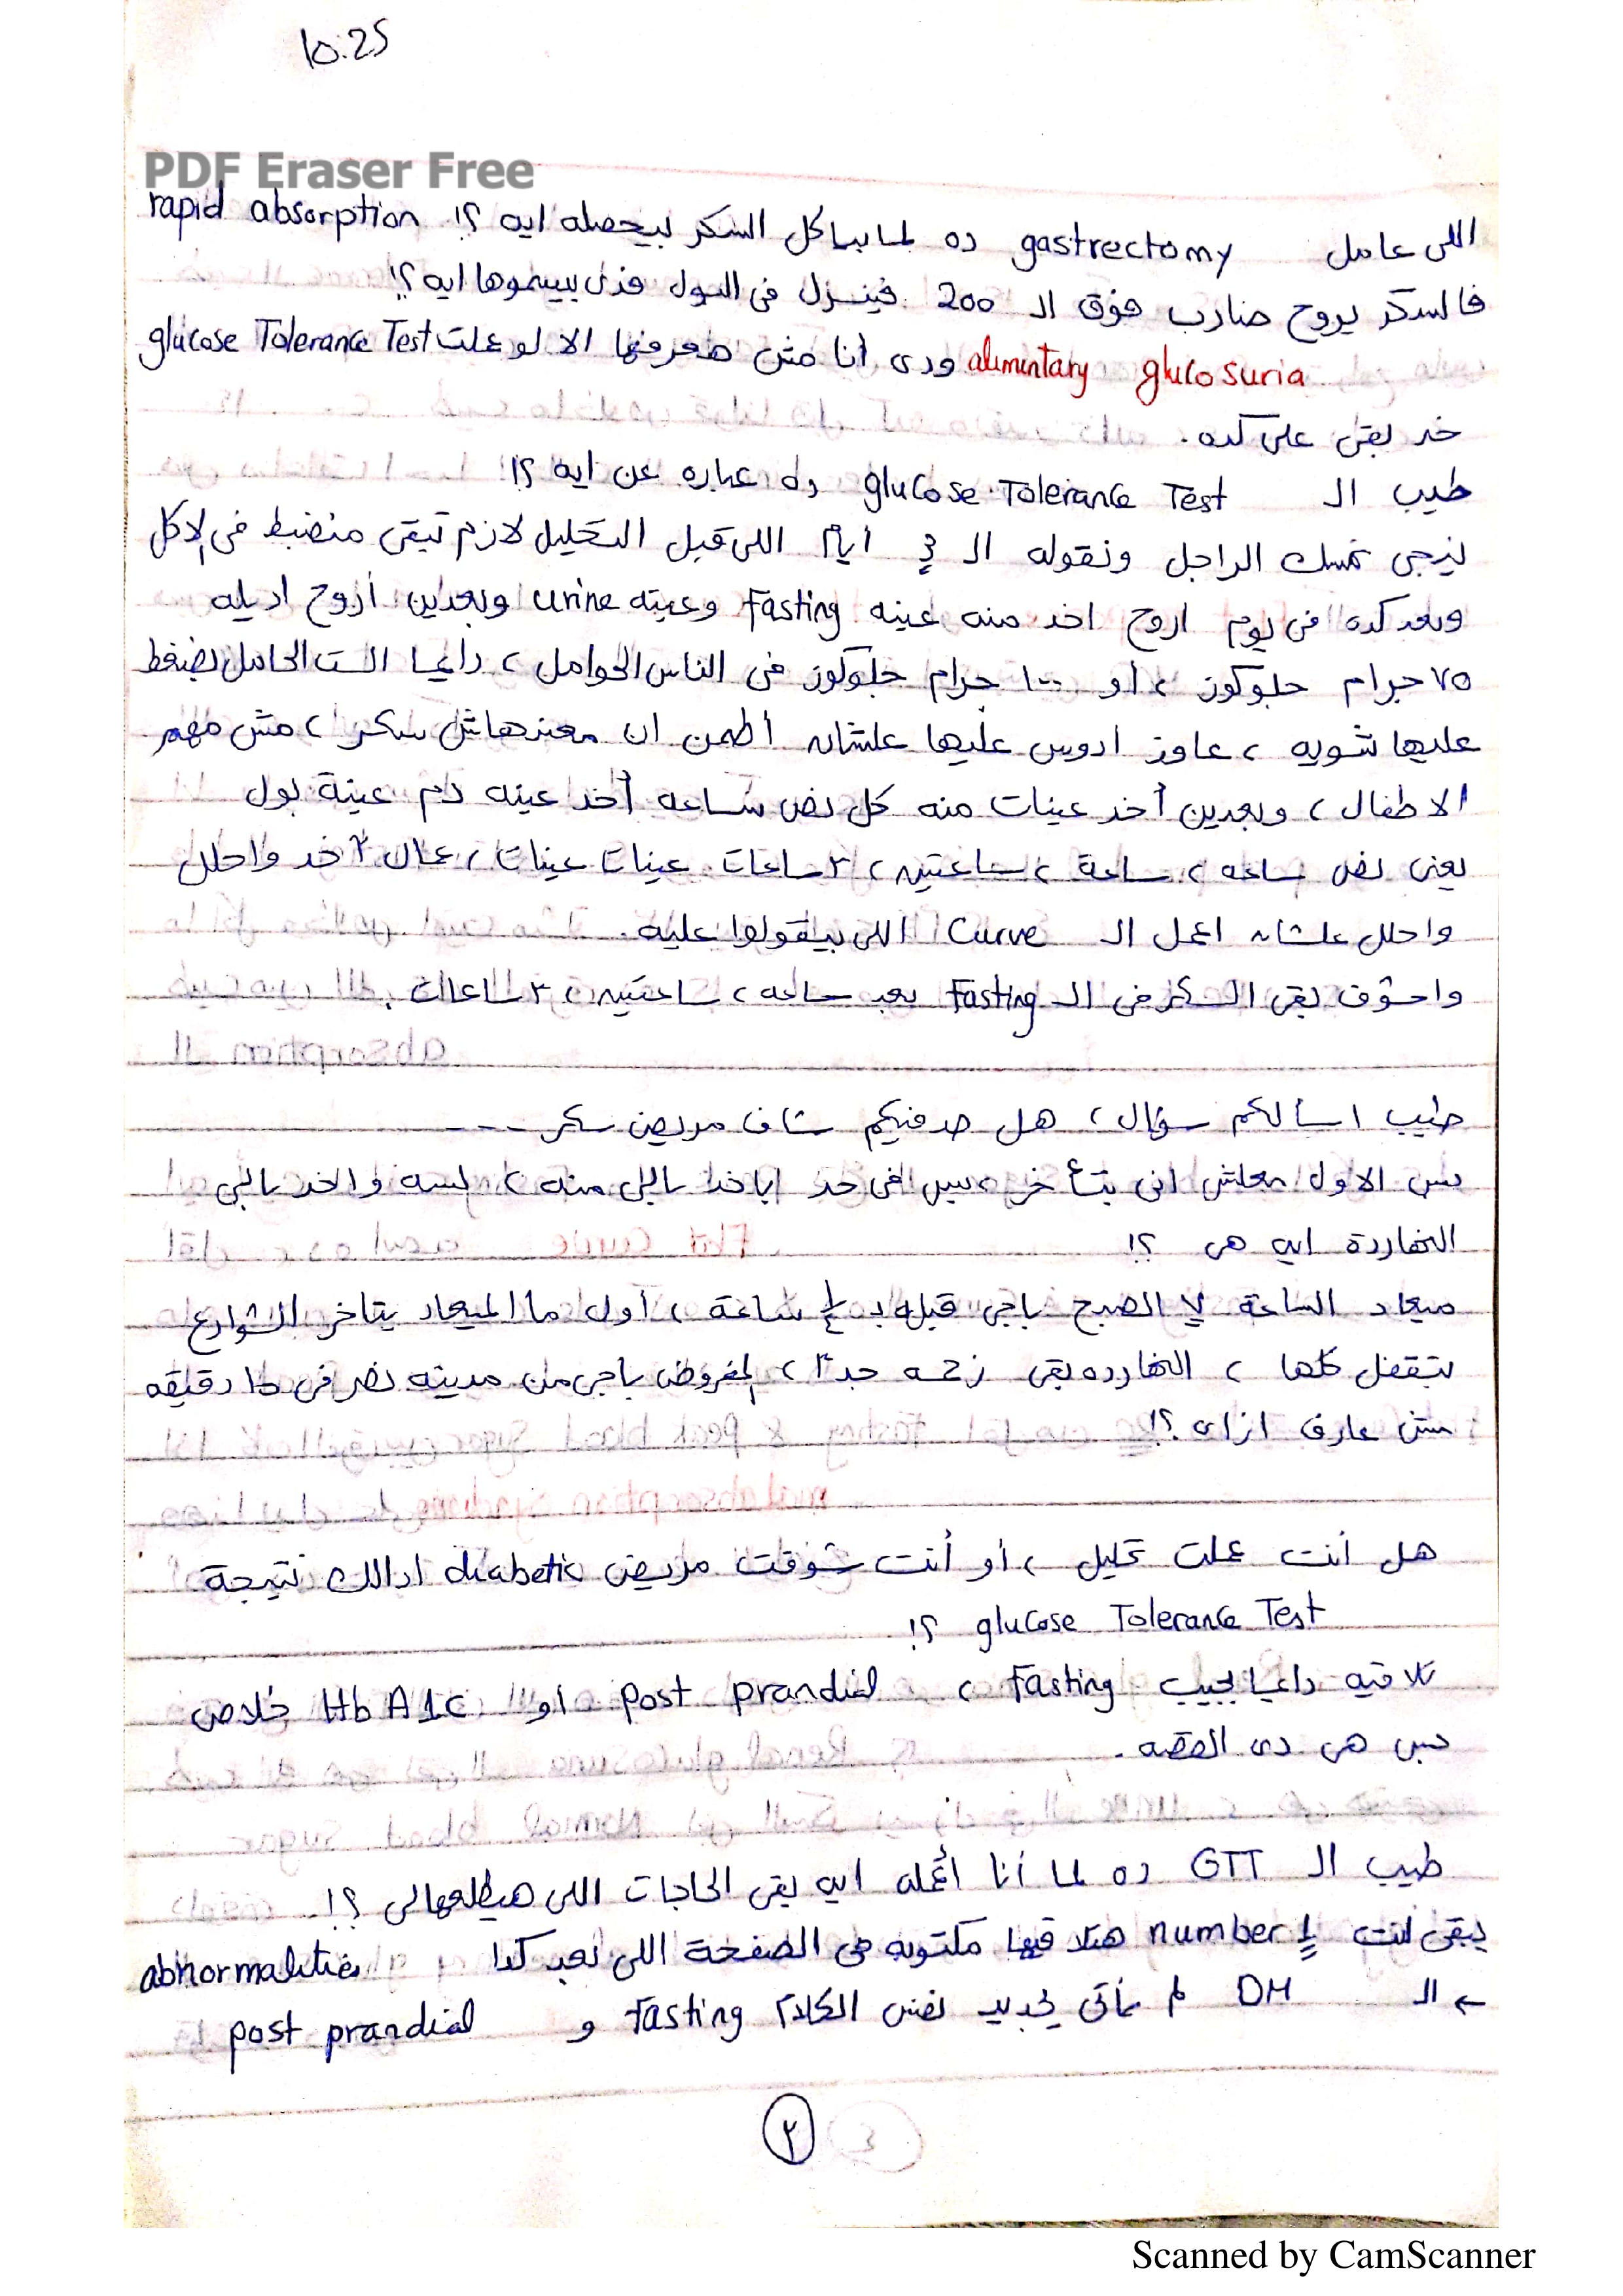 10:25
PDF Eraser Free
اللى عامل gastrectomy ده لما بياكل السكر بيحصله ايه ؟! rapid absorption
فالسكر يروح ضارب فوق الـ 200 فينزل فى البول فدى بيسموها ايه ؟!
alimentary glucosuria ودى أنا مش هعرفها الا لو عملت glucose Tolerance Test
خد بقى على كده.
طيب الـ glucose Tolerance Test ده عباره عن ايه ؟!
نيجى نمسك الراجل ونقوله الـ 3 أيام اللى قبل التحليل لازم تبقى منضبط فى الاكل
وبعد كده فى يوم اروح اخد منه عينه Fasting وعينه urine وبعدين أروح اديله
٧٥ جرام جلوكوز ، أو ١٠٠ جرام جلوكوز فى الناس الحوامل ، دايما الست الحامل بضغط
عليها شويه ، عاوز ادوس عليها علشان أطمن ان معندهاش سكر ، مش مهم
الاطفال ، وبعدين أخد عينات منه كل نص ساعه أخد عينه دم عينة بول
يعنى نص ساعه ، ساعة ، ساعتين ، ٣ ساعات عينات عينات ، عمال آخد واحلل
واحلل علشان اعمل الـ Curve اللى بيقولوا عليه.
واشوف بقى السكر فى الـ Fasting بعد ساعه ، ساعتين ، ٣ ساعات.
طيب اسألكم سؤال ، هل حد فيكم شاف مريض سكر ----
بس الاول معلش انى بتأخر ، بس فى حد ياخد باللى منه ، لسه واخد بالى
النهاردة ايه هى ؟!
ميعاد الساعة ٧ الصبح باجى قبله بـ ¼ ساعة ، أول ما الميعاد يتاخر الشوارع
بتقفل كلها ، النهارده بقى زحمه جدًا ، المفروض باجى من مدينه نصر فى ١٥ دقيقه
مش عارف ازاى ؟!
هل أنت عملت تحليل ، أو أنت شوفت مريض diabetic ادالك نتيجة
glucose Tolerance Test ؟!
تلاقيه دايما يجيب Fasting ، post prandial أو Hb A1c خلاص
بس هى دى القصه.
طيب الـ GTT ده لما أنا أعمله ايه بقى الحاجات اللى هيطلعهالى ؟!
يبقى انت number 1 هتلاقيها مكتوبه فى الصفحة اللى بعد كدا abnormalities
← الـ DM لم نأتى بجديد نفس الكلام Fasting و post prandial
٢
Scanned by CamScanner